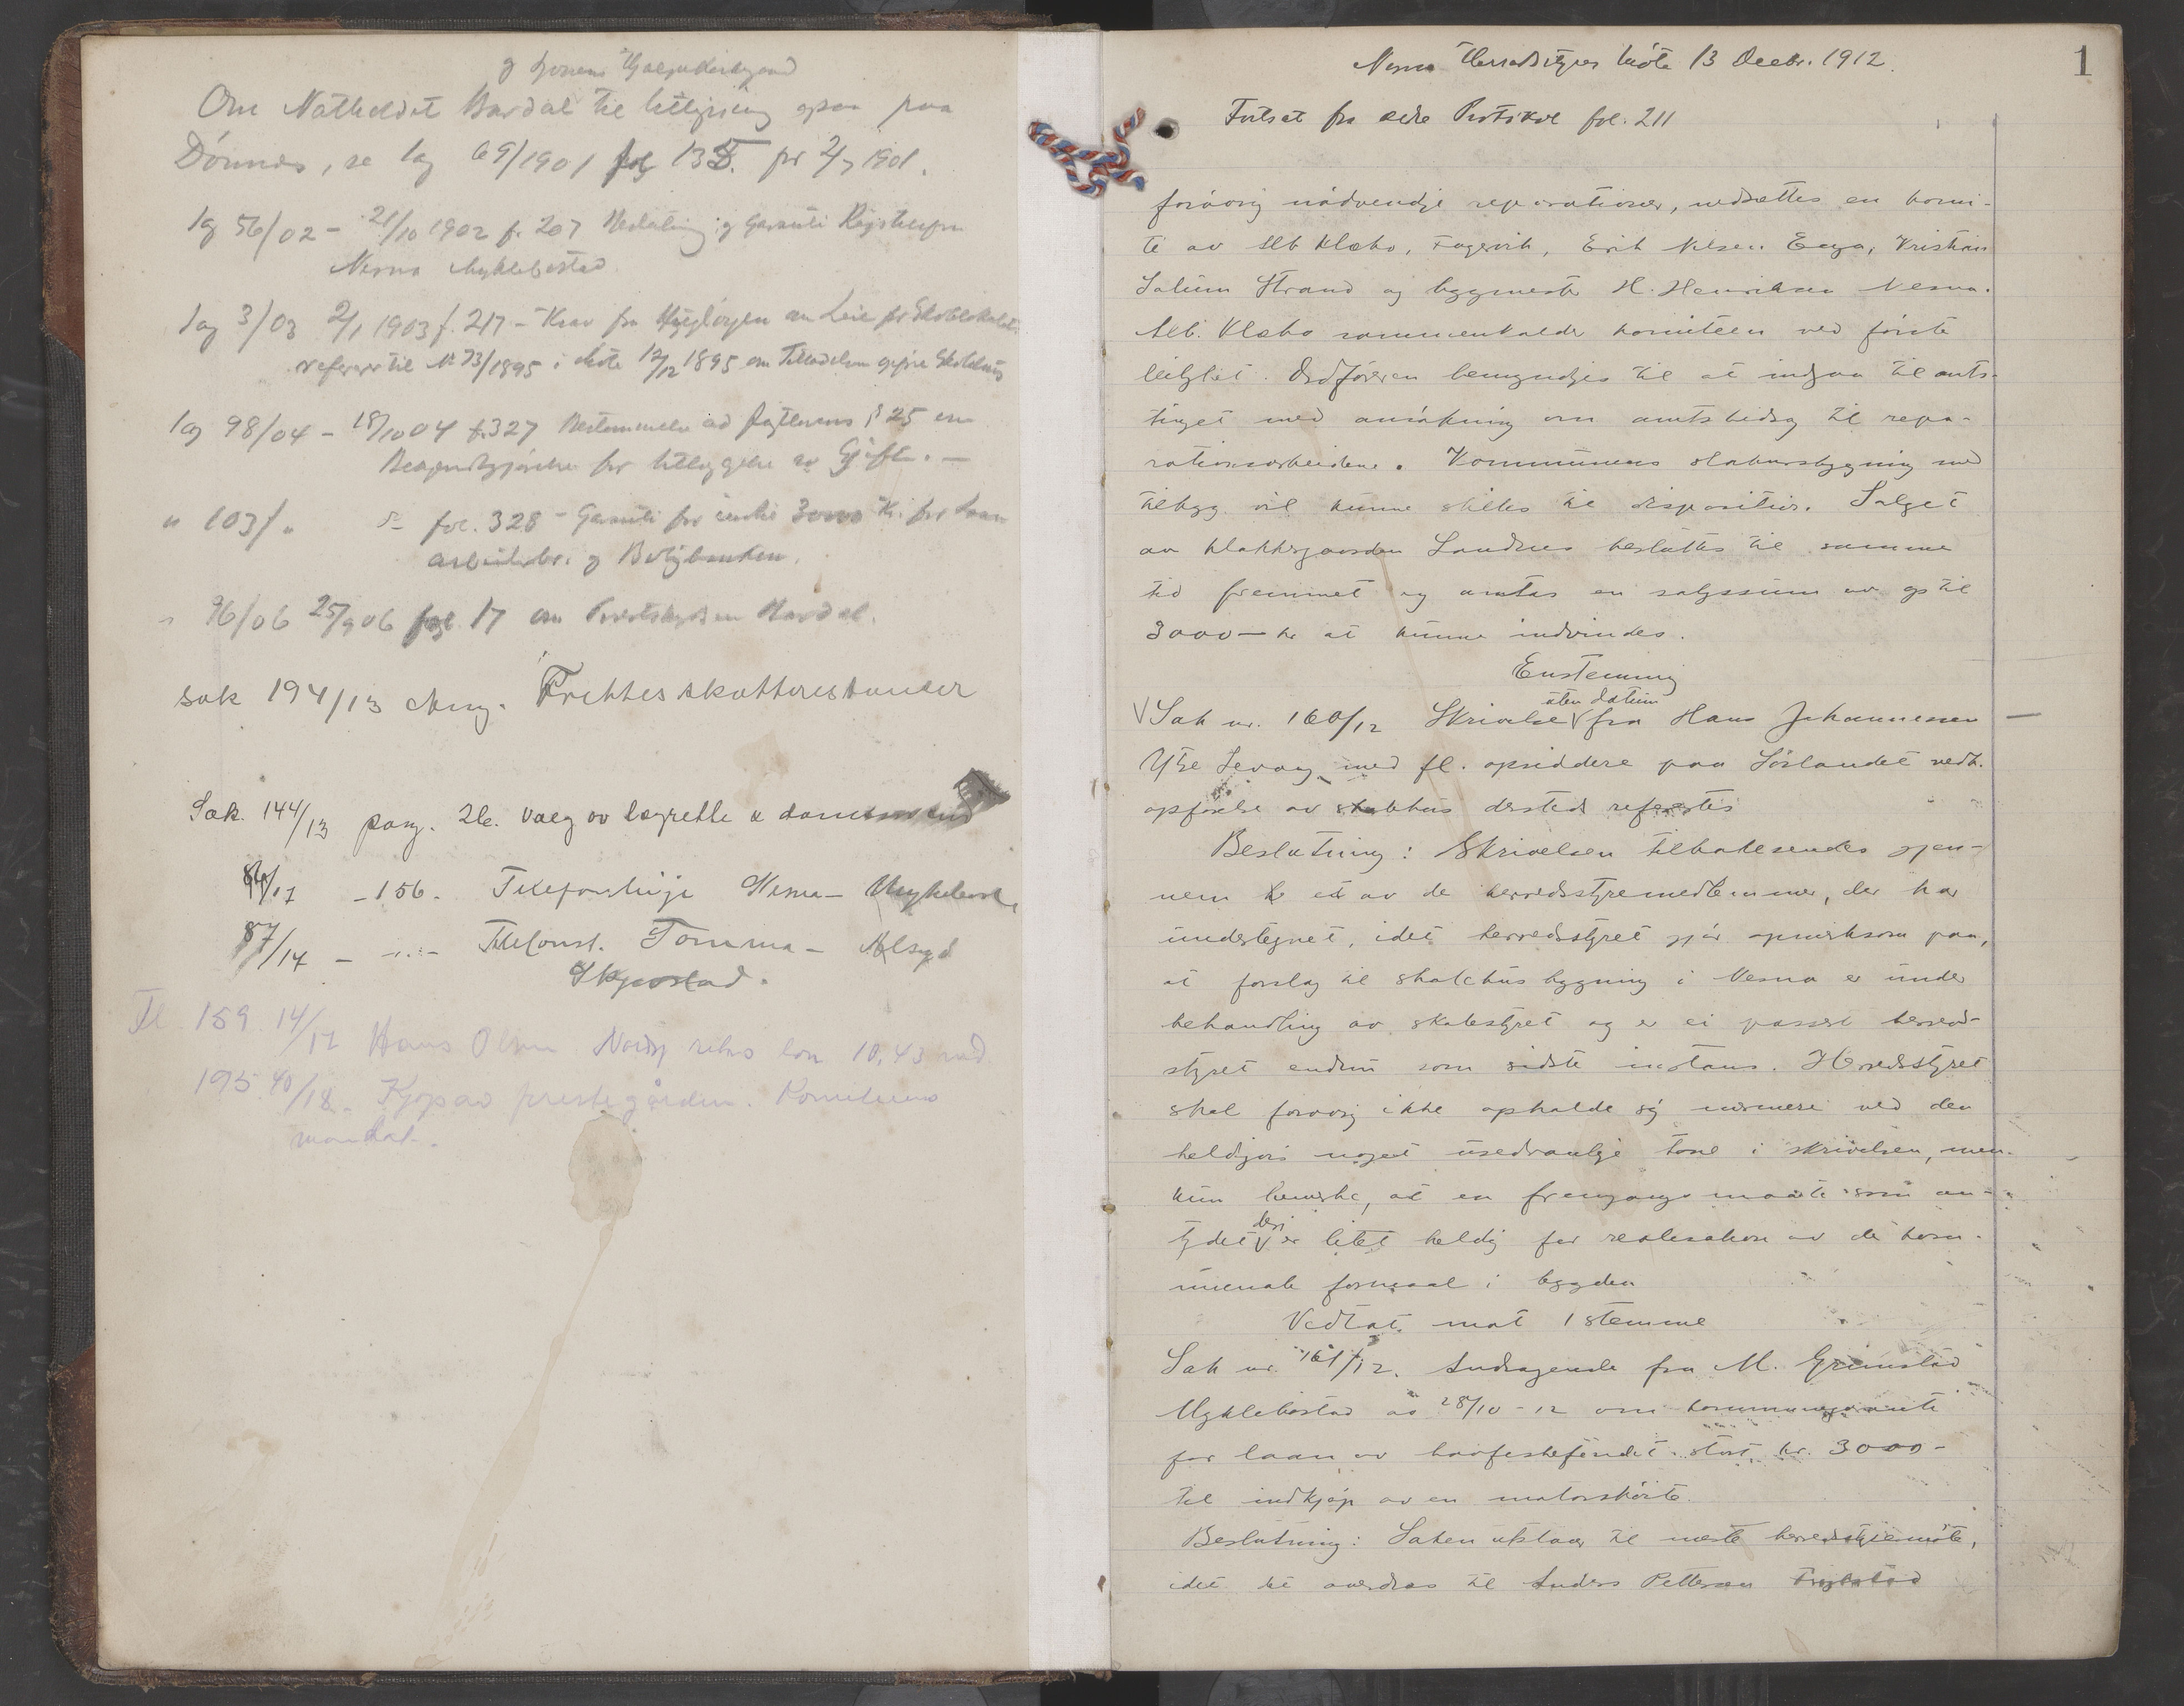 Om Natholdet Bardal til
Dønnes, se lag 69/1901 fol 135. pr 2/7 1901.
lag 56/02 - 21/10 1902 f. 207 Garanti
Nesna Myklebostad
lag 3/03 2/1 1903 f. 217 - Krav fra om Leie for Skolelokalet
refererer til Nr 73/1895 i Møte 17/12 1895 om
lag 98/04 - 18/10 04 f. 327 Bestemmelse ad § 25 om
for utlæggelse av Gift. -
" 103/" fol. 328 - Garanti for indtil 3000 Kr. for Laan
arbeiderbr. og Boligbanken.
" 96/06 25/9 06 fol 17 om Bardal.
sak 194/13 Ang. skatterestanser
Sak. 144/13 pag. 26. valg av lagrette &
86/17 - 156. Telefonlinje Nesna - Myklebost
87/17 - -"- Telefonst. Tomma -
Skjevstad.
Fl 159 14/17 Hans Olsen lön 10,43
195 40/18. Kjøp av prestegården. Komiteens
mandat.
1
Nesna Herredsstyres Møte 13 Decbr. 1912.
Fortsat fra ældre Protokol fol. 211
forøvrig nødvendige reparationer, nedsættes en komi-
te av Alb Klæbo, Fagervik, Erik Nilsen Enga, Kristian
Salum Strand og bygmester H. Henriksen Nesna.
Alb. Klæbo sammenkalder komiteen ved første
leilighet. Ordføreren bemyndiges til at indgaa til amts-
tinget med ansøkning om amtsbidrag til repa-
rationsarbeidene. Kommunens stabursbygning med
tilbygg vil kunne stilles til disposition. Salget
av klokkergaarden Landnes besluttes til samme
tid fremmet og antas en salgssum av op til
3000 - kr at kunne indvindes.
Enstemmig
Sak nr. 160/12 Skrivelse uten datum fra Hans Johannessen
Ytre Levang med fl. opsiddere paa Sørlandet vedk.
opførelse av skolehus dersteds refertes
Beslutning: Skrivelsen tilbakesendes gjen-
nem et av de herredsstyremedlemmer, der har
undertegnet, idet herredsstyret gjør opmerksom paa,
at forslag til skolehusbygning i Nesna er under
behandling av skolestyret og er ei passert herreds-
styret endnu som sidste instans. Herredsstyret
skal forøvrig ikke opholde sig nærmere ved den
heldigvis noget usedvanlige tone i skrivelsen, men
kun bemerke, at en fremgangsmaate som an-
tydet deri er litet heldig for realisation av de kom-
munale formaal i bygden
Vedtat mot 1 stemme
Sak nr. 161/12. Andragende fra M. Grimstad
Myklebostad av 28/10 - 12 om kommunegaranti
for laan av havfiskefondet stort kr. 3000 -
til indkjøp av en motorskøite
Beslutning: Saken utstaar til næste herredsstyremøte,
idet det overdras til Anders Pettersen